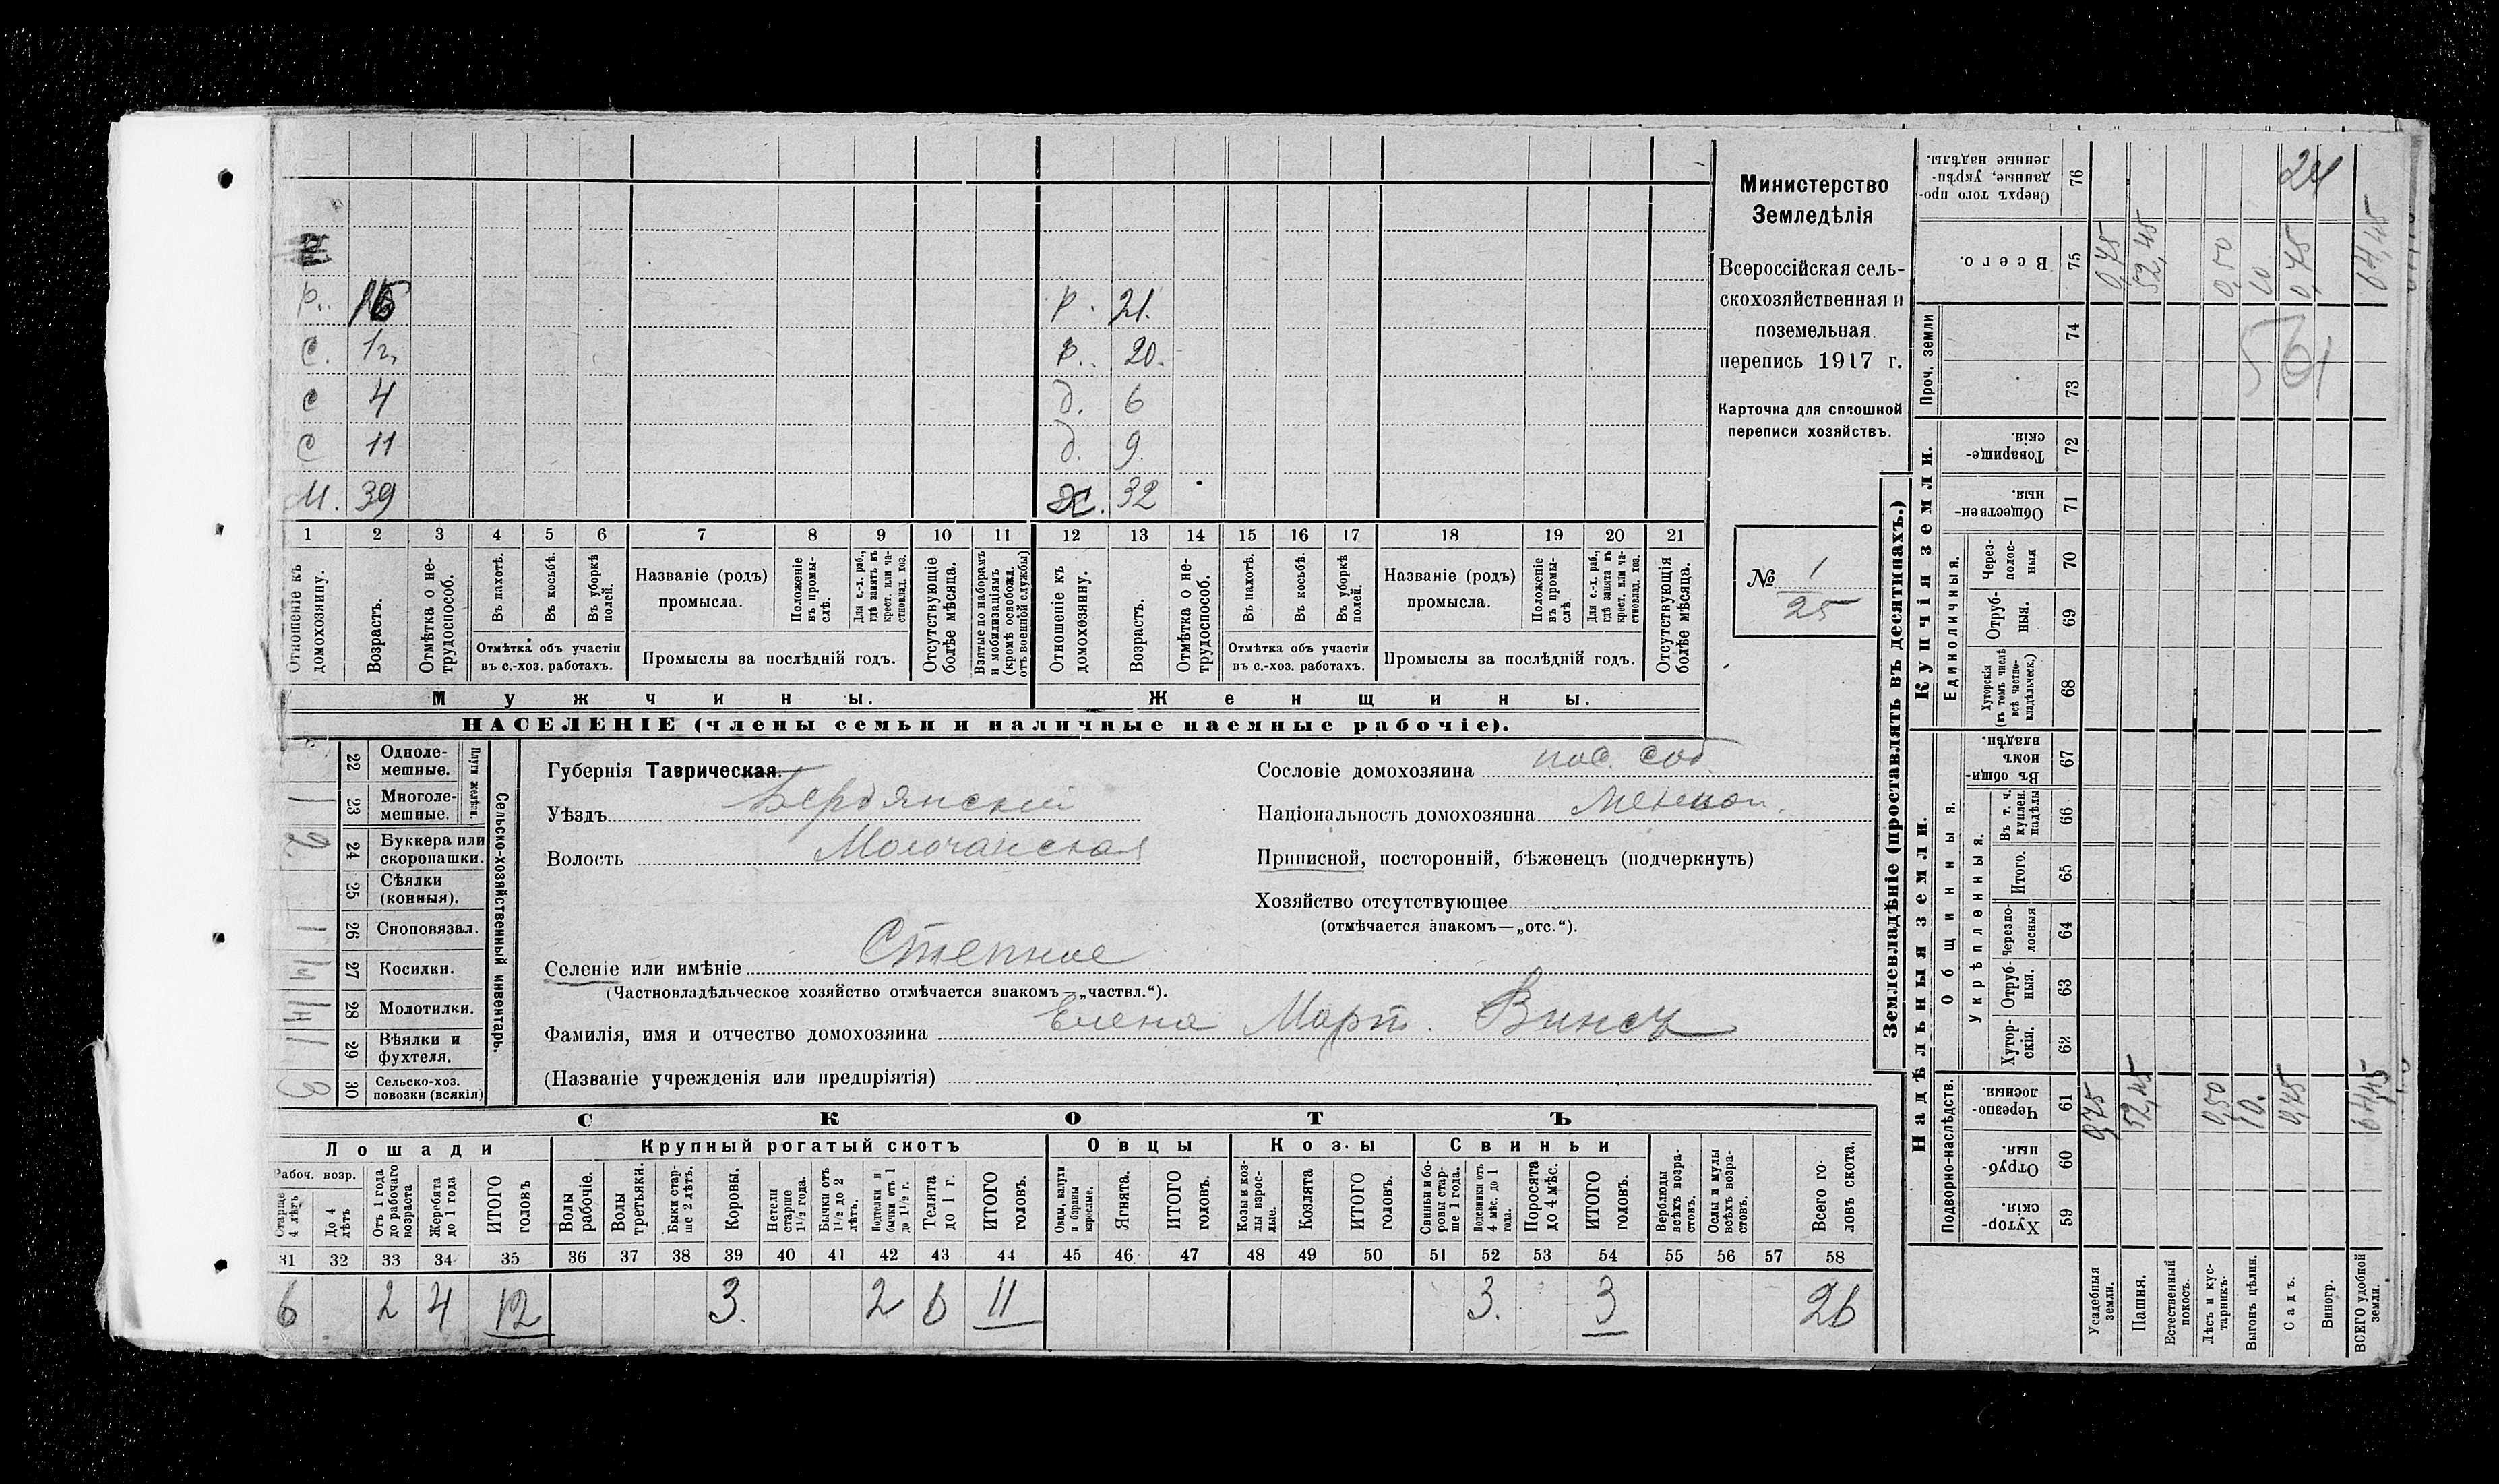 Министерство
Земледѣлія
Всероссійская сель-
скохозяйственная и
поземельная
перепись 1917 г.
Карточка для сплошной
переписи хозяйствъ.
№ 1
25
р. 16 р. 21.
с. 1 г. р. 20.
с 4 д. 6
с 11 д. 9
М. 39 Ж. 32
1 2 3 4 5 6 7 8 9 10 11 12 13 14 15 16 17 18 19 20 21
Отношеніе къ домохозяину.
Возрастъ.
Отмѣтка о не-трудоспособ.
Въ пахотѣ.
Въ косьбѣ.
Въ уборкѣ полей.
Отмѣтка объ участіи
въ с.-хоз. работахъ.
Названіе (родъ)
промысла.
Положеніе въ промы-слѣ.
Для с.-х. раб., гдѣ занятъ въ крест. или ча-стновлад. хоз.
Промыслы за послѣдній годъ.
Отсутствующіе болѣе мѣсяца.
Взятые по наборамъ и мобилизаціямъ (кромѣ освобожд. отъ военной службы)
Отношеніе къ домохозяину.
Возрастъ.
Отмѣтка о не-трудоспособ.
Въ пахотѣ.
Въ косьбѣ.
Въ уборкѣ полей.
Отмѣтка объ участіи
въ с.-хоз. работахъ.
Названіе (родъ)
промысла.
Положеніе въ промы-слѣ.
Для с.-х. раб., гдѣ занята въ крест. или ча-стновлад. хоз.
Промыслы за послѣдній годъ.
Отсутствующія болѣе мѣсяца.
Мужчины. Женщины.
НАСЕЛЕНІЕ (члены семьи и наличные наемные рабочіе).
Сельско-хозяйственный инвентарь.
Плуги желѣзн.
22 Одноле-мешные.
1 23 Многоле-мешные.
2. 24 Буккера или скоропашки.
25 Сѣялки (конныя).
1 26 Сноповязал.
27 Косилки.
28 Молотилки.
1 29 Вѣялки и фухтеля.
3 30 Сельско-хоз. повозки (всякія)
Губернія Таврическая.
Уѣздъ Бердянскій
Волость Молочанская
Селеніе или имѣніе Степное
(Частновладѣльческое хозяйство отмѣчается знакомъ—„частвл.“).
Фамилія, имя и отчество домохозяина Елена Март. Винсъ
(Названіе учрежденія или предпріятія)
Сословіе домохозяина пос. соб.
Національность домохозяина Меннон.
Приписной, посторонній, бѣженецъ (подчеркнуть)
Хозяйство отсутствующее
(отмѣчается знакомъ—„отс.“).
СКОТЪ
Лошади Крупный рогатый скотъ Овцы Козы Свиньи
Рабоч. возр.
Старше 4 лѣтъ
До 4 лѣтъ
Отъ 1 года до рабочаго возраста
Жеребята до 1 года
ИТОГО головъ
Волы рабочіе.
Волы третьяки.
Быки стар-ше 2 лѣтъ.
Коровы.
Нетели старше 1½ года.
Бычки отъ 1½ до 2 лѣтъ.
Подтелки и бычки отъ 1 до 1½ г.
Телята до 1 г.
ИТОГО головъ.
Овцы, валухи и бараны взрослые.
Ягнята.
ИТОГО головъ.
Козы и коз-лы взрос-лые.
Козлята
ИТОГО головъ.
Свиньи и бо-ровы стар-ше 1 года.
Подсвинки отъ 4 мѣс. до 1 года.
Поросята до 4 мѣс.
ИТОГО головъ.
Верблюды всѣхъ возра-стовъ.
Ослы и мулы всѣхъ возра-стовъ.
Всего го-ловъ скота.
31 32 33 34 35 36 37 38 39 40 41 42 43 44 45 46 47 48 49 50 51 52 53 54 55 56 57 58
6 2 4 12 3. 2 6 11 3. 3 26
Землевладѣніе (проставлять въ десятинахъ.)
Надѣльныя земли. Купчія земли.
Подворно-наслѣдств.
Общинныя.
Укрѣпленныя.
Единоличныя.
Проч. земли
Хутор-скія. 59
Отруб-ныя. 60
Черезпо-лосныя. 61
Хутор-скія. 62
Отруб-ныя. 63
Черезпо-лосныя 64
Итого. 65
Въ т. ч. куплен. надѣлы 66
Въ общи-номъ владѣн. 67
Хуторскія (въ томъ числѣ всѣ частно-владѣльческ.) 68
Отруб-ныя. 69
Через-полос-ныя 70
Обществен-ныя. 71
Товарище-скія. 72
73
74
Всего. 75
Сверхъ того про-данные, укрѣп-ленные надѣлы. 76
Усадебныя земли. 0,75 0,75
Пашня. 52,45 52,45
Естественный покосъ.
Лѣсъ и кус-тарникъ. 0,50 0,50
Выгонъ цѣлин. 10. 10.
Садъ. 0,75 0,75
Виногр.
ВСЕГО удобной земли. 64,45 64,45
24